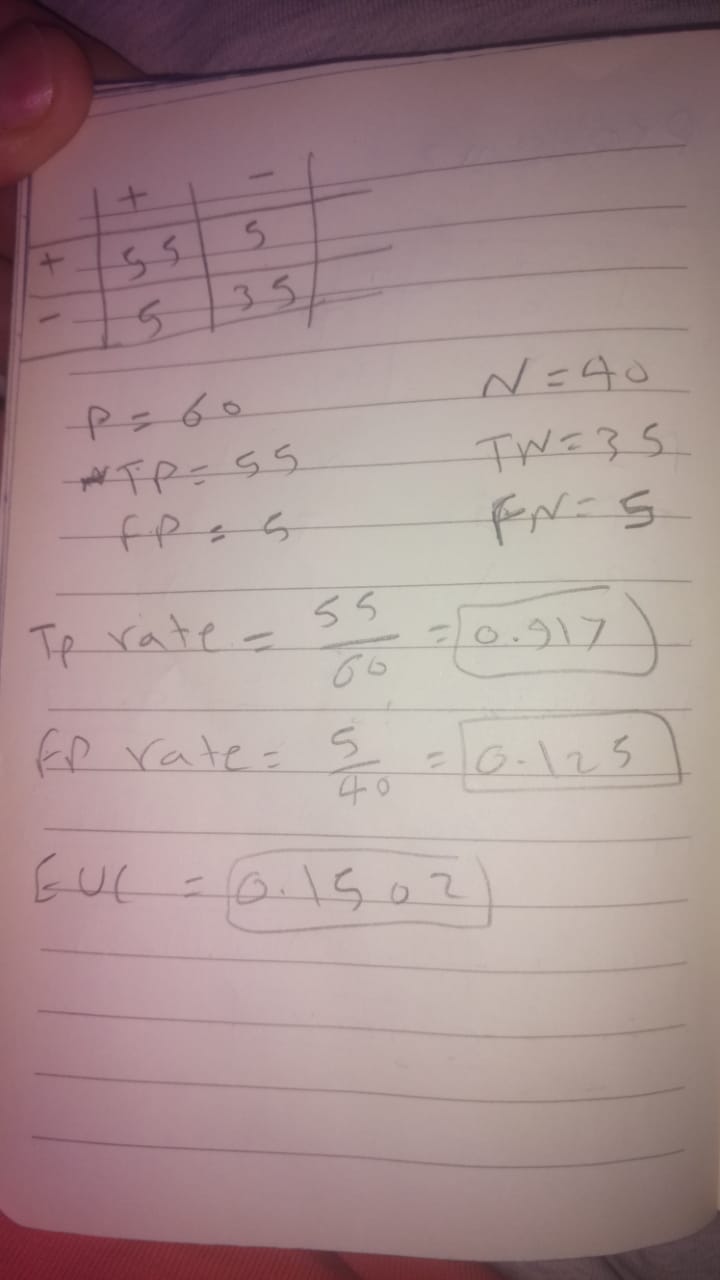 + -
+ 55 5
- 5 35
P = 60 N = 40
TP = 55 TN = 35
FP = 5 FN = 5
Tp rate = 55/60 = 0.917
FP rate = 5/40 = 0.125
EUC = 0.1502